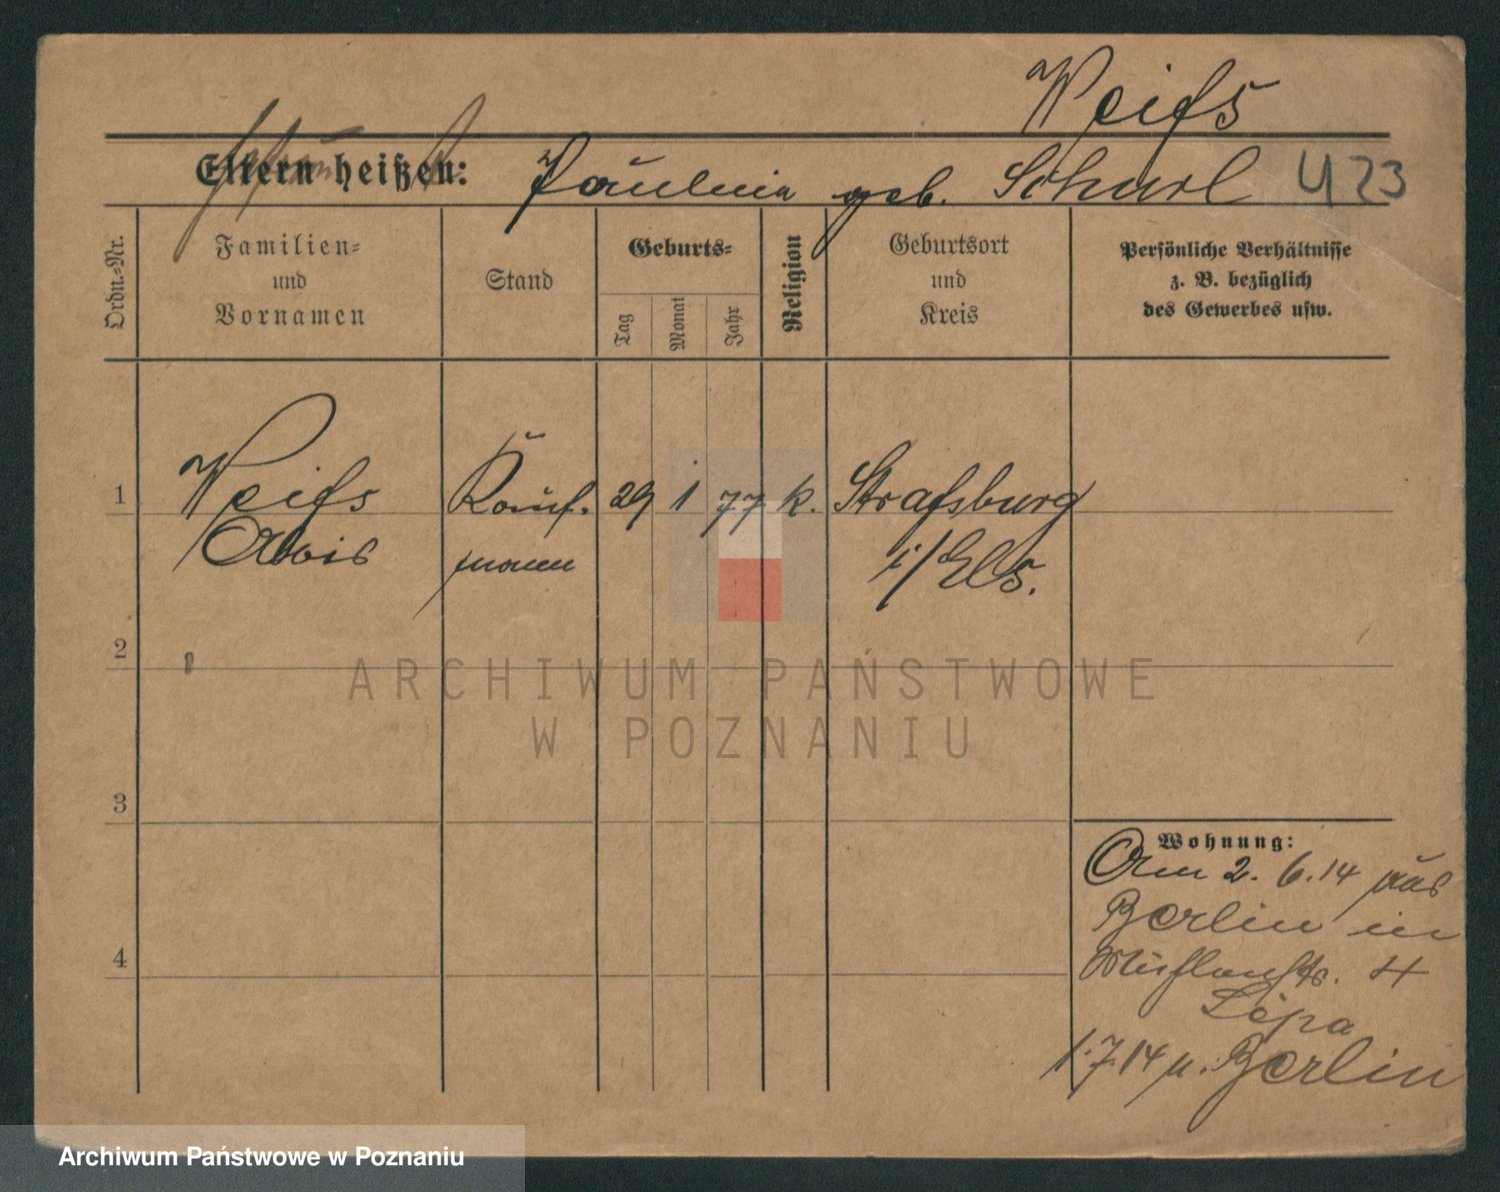 Weiſs
Eltern heißen: Paulina geb. Scharl 423
Ordn.-Nr.
Familien-
und
Vornamen
Stand
Geburts-
Tag
Monat
Jahr
Religion
Geburtsort
und
Kreis
Persönliche Verhältnisse
z. B. bezüglich
des Gewerbes usw.
1 Weiſs Kauf. 29 1 77 k. Straſsburg
Alois mann i/Els.
2
ARCHIWUM PAŃSTWOWE
W POZNANIU
3
Wohnung:
Am 2. 6. 14 aus
Berlin in
4
1.7.14 n. Berlin
Archiwum Państwowe w Poznaniu